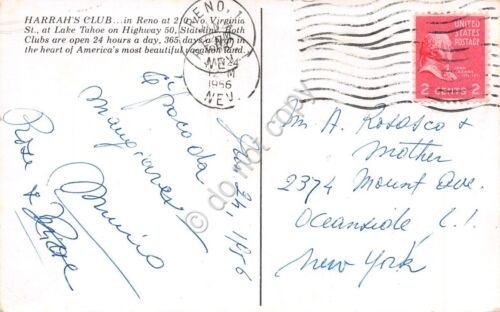 HARRAH'S CLUB...in Reno at 210 No. Virginia
St., at Lake Tahoe on Highway 50, Stateline. Both
Clubs are open 24 hours a day, 365 days a year in
the heart of America's most beautiful vacation land.
RENO, 1
1956
NEV.
UNITED STATES
POSTAGE
2 CENTS 2
Jan 24, 1956
Rose &
A. Rosasco &
Mother
2374 Mount Ave.
Oceanside L.I.
New York
do not copy